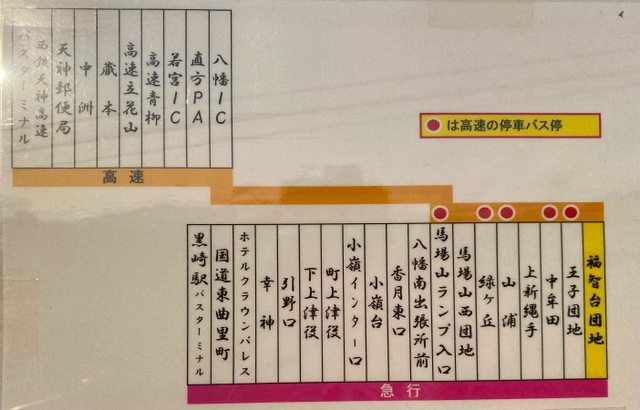 西鉄天神高速
バスターミナル
天神郵便局
中洲
蔵本
高速立花山
高速青柳
若宮IC
直方PA
八幡IC
高速
は高速の停車バス停
黒崎駅バスターミナル
国道東曲里町
ホテルクラウンパレス
幸神
引野口
下上津役
町上津役
小嶺インター口
小嶺台
香月東口
八幡南出張所前
馬場山ランプ入口
馬場山西団地
緑ヶ丘
山浦
上新縄手
中牟田
王子団地
福智台団地
急行